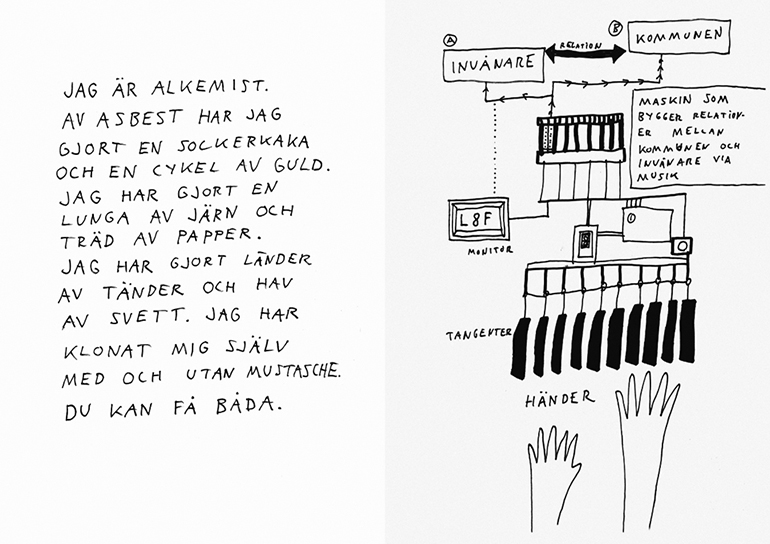 JAG ÄR ALKEMIST.
AV ASBEST HAR JAG
GJORT EN SOCKERKAKA
OCH EN CYKEL AV GULD.
JAG HAR GJORT EN
LUNGA AV JÄRN OCH
TRÄD AV PAPPER.
JAG HAR GJORT LÄNDER
AV TÄNDER OCH HAV
AV SVETT. JAG HAR
KLONAT MIG SJÄLV
MED OCH UTAN MUSTASCHE.
DU KAN FÅ BÅDA.
A
INVÅNARE
RELATION
B
KOMMUNEN
MASKIN SOM
BYGGER RELATION-
ER MELLAN
KOMMUNEN OCH
INVÅNARE VIA
MUSIK
L8F
MONITOR
1
TANGENTER
HÄNDER